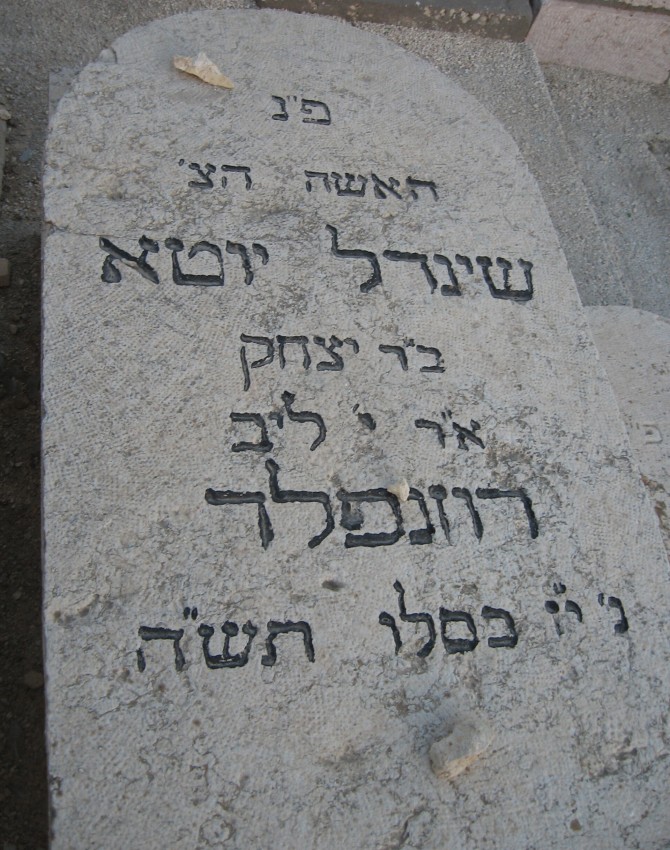 פ"נ
האשה הצ'
שינדל יוטא
ב"ר יצחק
א"ר י' ליב
רוזנפלד
נ' י"ז כסלו תש"ה